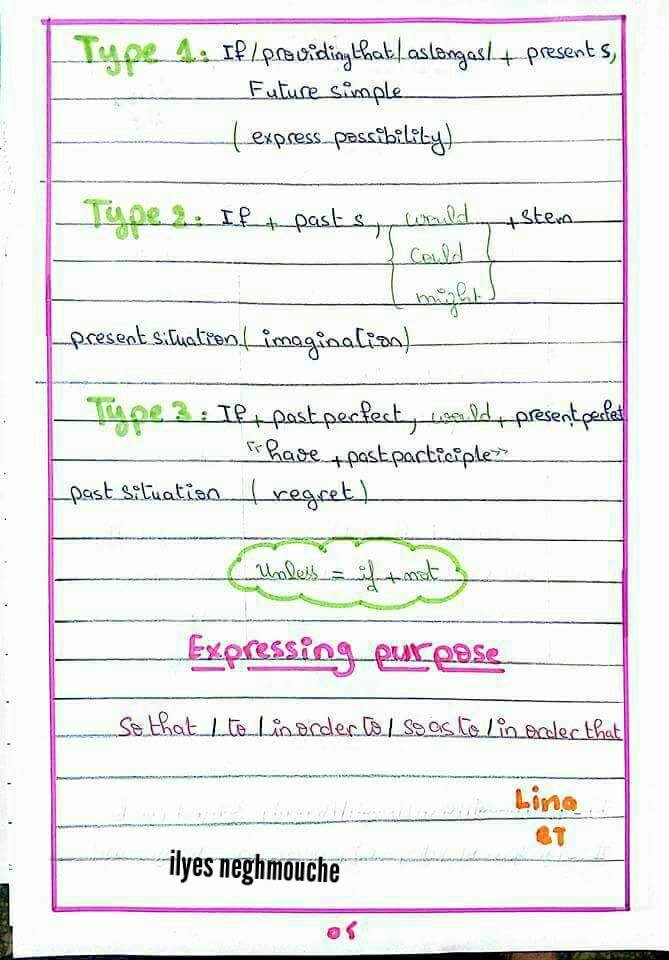 Type 1: If / providing that / as long as / + present s,
Future simple
( express possibility )
Type 2: If + past s, would + stem
could
might
present situation ( imagination )
Type 3: If + past perfect, would + present perfet
"have + past participle"
past situation ( regret )
Unless = if + not
Expressing purpose
So that / to / in order to / so as to / in order that
Lina
BT
ilyes neghmouche
05